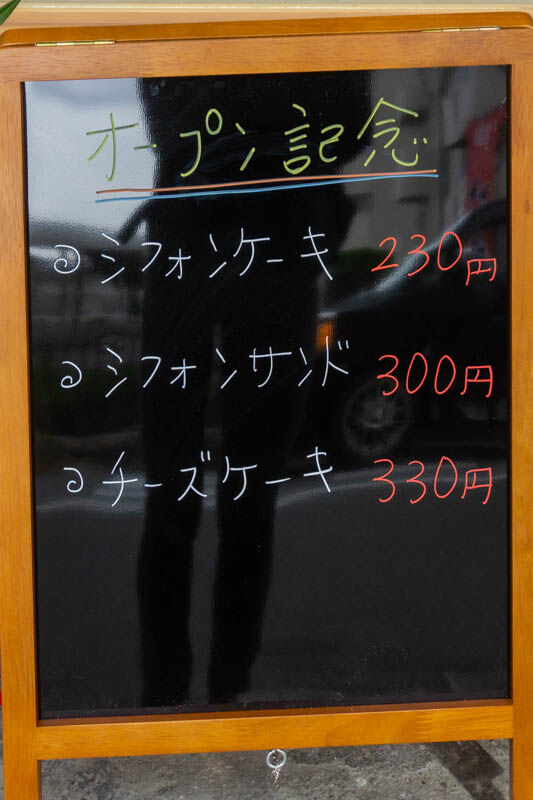 オープン記念
シフォンケーキ 230円
シフォンサンド 300円
チーズケーキ 330円